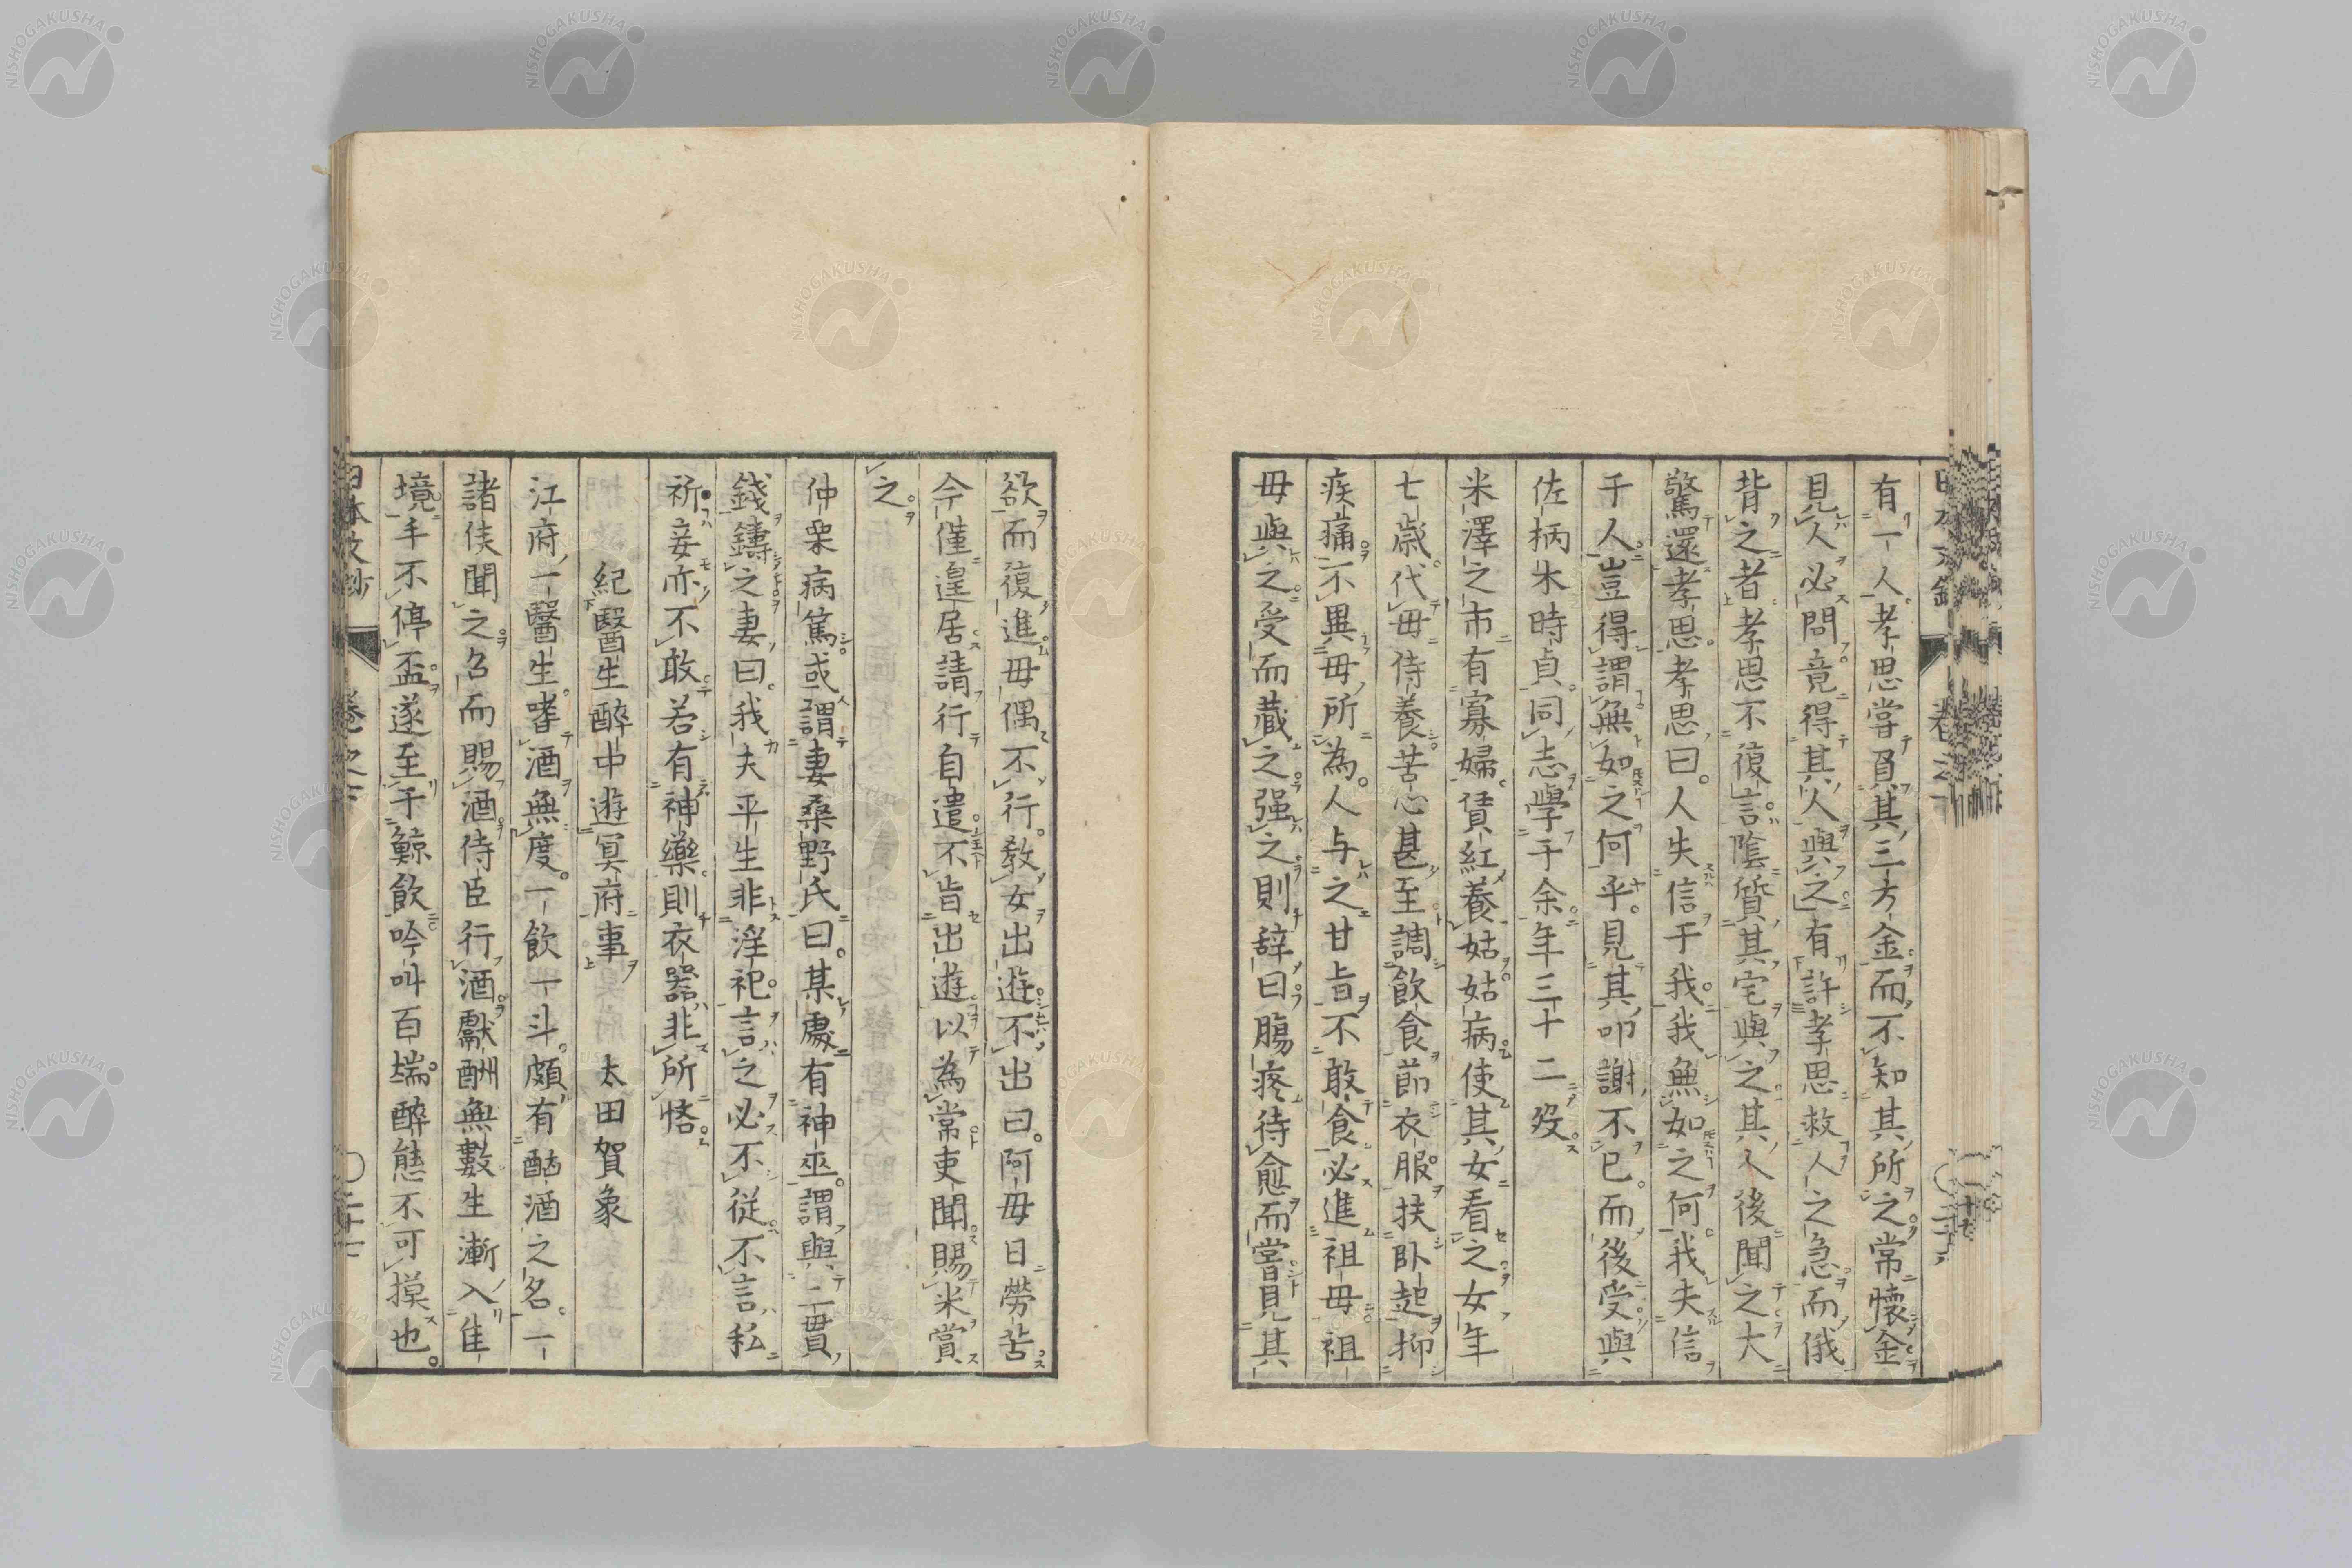 有一人孝思嘗負其三方金而不知其所之常懷金
見人必問竟得其人與之有許孝思救人之急而俄
背之者孝思不復言陰質其宅與之其人後聞之大
驚還孝思孝思曰人失信于我我無如之何我失信
于人豈得謂無如之何乎見其叩謝不已而後受與
佐柄木時貞同志學于余年三十二歿
米澤之市有寡婦賃紅養姑姑病使其女看之女年
七歲代毋侍養苦心甚至調飲食節衣服扶卧起抑
疾痛不異毋所為人与之甘旨不敢食必進祖毋祖
毋與之受而藏之强之則辞曰膓疼待愈而嘗見其
欲而復進毋偶不行教女出遊不出曰阿毋日勞苦
今僅遑居請行自遣不肯出遊以為常吏聞賜米賞
之
仲栗病篤或謂妻桑野氏曰某處有神巫謂與二貫
錢鑄之妻曰我夫平生非淫祀言之必不從不言私
祈妾亦不敢若有神樂則衣器非所悋
紀醫生醉中遊冥府事 太田賀象
江府一醫生嗜酒無度一飲一斗頗有酤酒之名一
諸侯聞之召而賜酒侍臣行酒獻酬無數生漸入佳
境手不停盃遂至于鯨飲吟叫百端醉態不可摸也
日本文鈔 卷之下
NISHOGAKUSHA